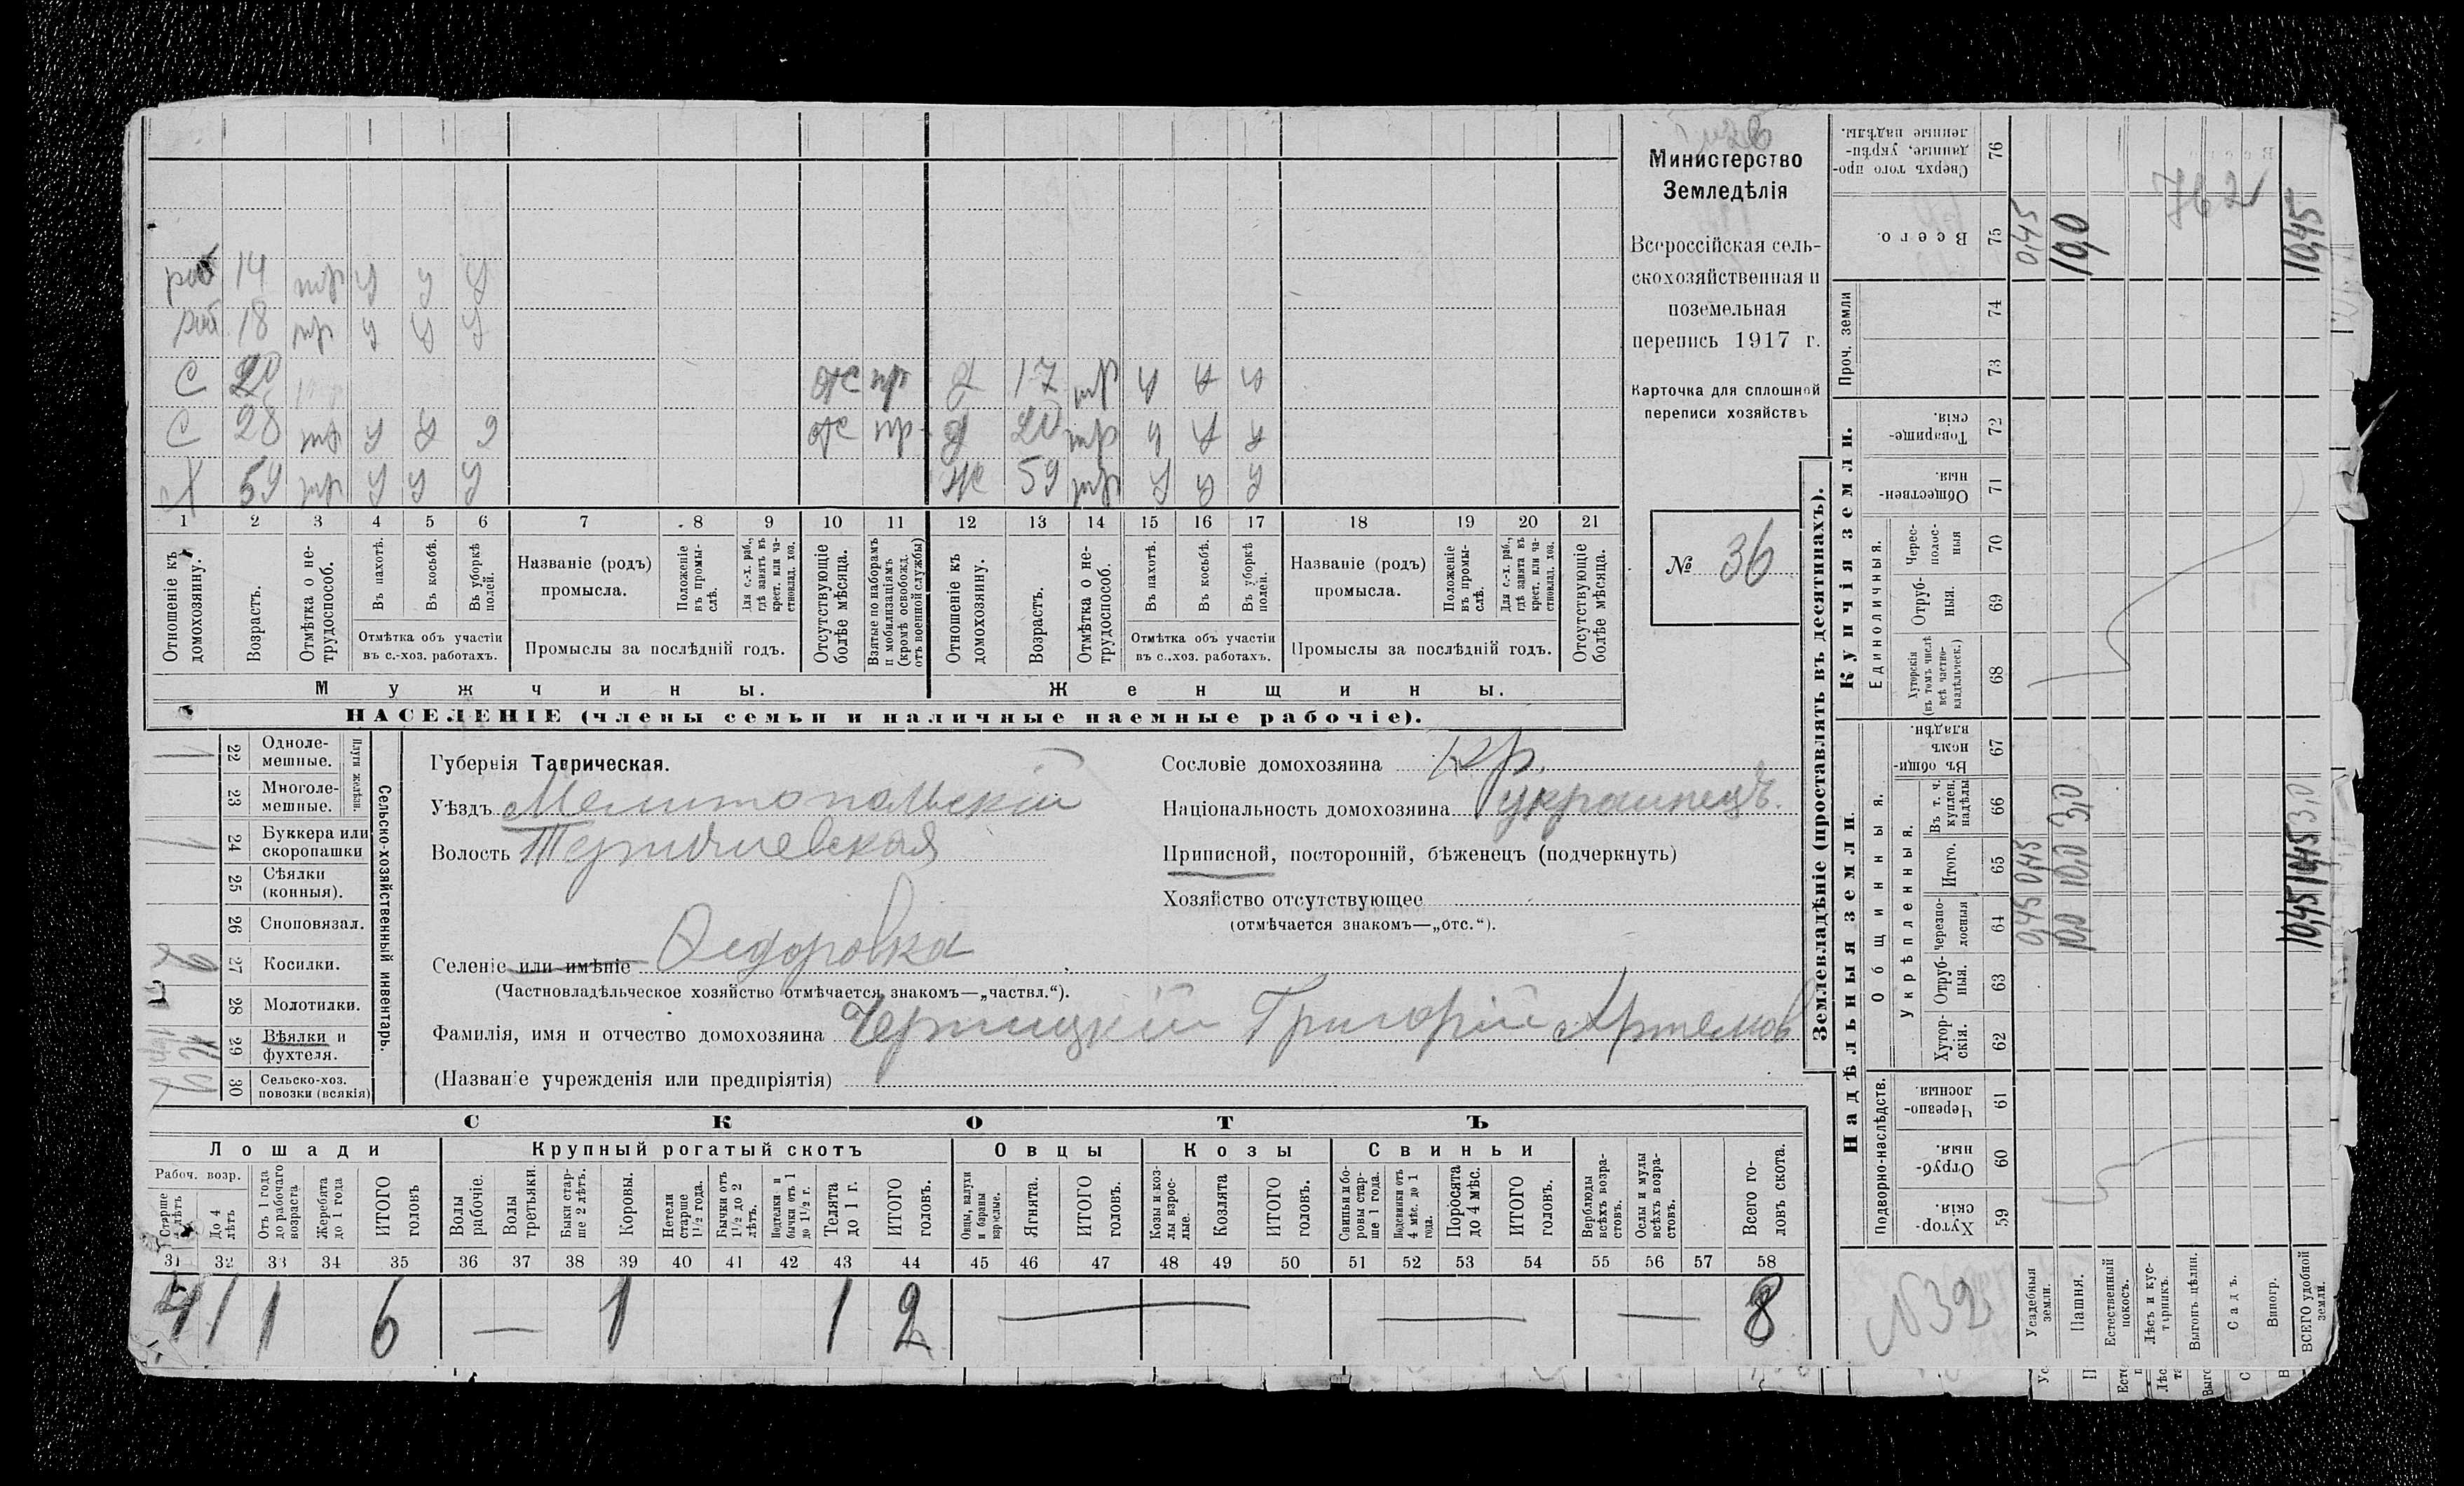 раб 14 тр у у у
раб 18 тр у у у
С 20 отс пр д 17 тр у у у
С 28 тр у у у отс пр д 20 тр у у у
Х 59 тр у у у ж 59 тр у у у
1 2 3 4 5 6 7 8 9 10 11 12 13 14 15 16 17 18 19 20 21
Отношеніе къ домохозяину.
Возрастъ.
Отмѣтка о не-трудоспособ.
Въ пахотѣ.
Въ косьбѣ.
Въ уборкѣ полей.
Отмѣтка объ участіи въ с.-хоз. работахъ.
Названіе (родъ) промысла.
Положеніе въ промы-слѣ.
Для с.-х. раб., гдѣ занятъ въ крест. или ча-стновлад. хоз.
Промыслы за послѣдній годъ.
Отсутствующіе болѣе мѣсяца.
Взятые по наборамъ и мобилизаціямъ (кромѣ освобожд. отъ военной службы)
Отношеніе къ домохозяину.
Возрастъ.
Отмѣтка о не-трудоспособ.
Въ пахотѣ.
Въ косьбѣ.
Въ уборкѣ полей.
Отмѣтка объ участіи въ с..хоз. работахъ.
Названіе (родъ) промысла.
Положеніе въ промы-слѣ.
Для с.-х. раб., гдѣ занята въ крест. или ча-стновлад. хоз.
Промыслы за послѣдній годъ.
Отсутствующіе болѣе мѣсяца.
Мужчины.
Женщины.
НАСЕЛЕНІЕ (члены семьи и наличные наемные рабочіе).
Министерство
Земледѣлія
Всероссійская сель-
скохозяйственная и
поземельная
перепись 1917 г.
Карточка для сплошной
переписи хозяйствъ
№ 36
22 Одноле-мешные. 1
23 Многоле-мешные.
Плуги желѣзн.
24 Буккера или скоропашки 1
25 Сѣялки (конныя).
26 Сноповязал.
27 Косилки.
28 Молотилки.
29 Вѣялки и фухтеля.
30 Сельско-хоз. повозки (всякія)
Сельско-хозяйственный инвентарь.
Губернія Таврическая.
Уѣздъ Мелитопольскій
Волость
Селеніе или имѣніе Федоровка
(Частновладѣльческое хозяйство отмѣчается знакомъ—„частвл.“).
Фамилія, имя и отчество домохозяина Григорій Артемов
(Названіе учрежденія или предпріятія)
Сословіе домохозяина кр.
Національность домохозяина украинецъ.
Приписной, посторонній, бѣженецъ (подчеркнуть)
Хозяйство отсутствующее
(отмѣчается знакомъ—„отс.“).
СКОТЪ
Лошади Крупный рогатый скотъ Овцы Козы Свиньи
Рабоч. возр.
Старше 4 лѣтъ
До 4 лѣтъ
Отъ 1 года до рабочаго возраста
Жеребята до 1 года
ИТОГО головъ
Волы рабочіе.
Волы третьяки.
Быки стар-ше 2 лѣтъ.
Коровы.
Нетели старше 1½ года.
Бычки отъ 1½ до 2 лѣтъ.
Подтелки и бычки отъ 1 до 1½ г.
Телята до 1 г.
ИТОГО головъ.
Овцы, валухи и бараны взрослые.
Ягнята.
ИТОГО головъ.
Козы и коз-лы взрос-лые.
Козлята
ИТОГО головъ.
Свиньи и бо-ровы стар-ше 1 года.
Подсвинки отъ 4 мѣс. до 1 года.
Поросята до 4 мѣс.
ИТОГО головъ.
Верблюды всѣхъ возра-стовъ.
Ослы и мулы всѣхъ возра-стовъ.
Всего го-ловъ скота.
31 32 33 34 35 36 37 38 39 40 41 42 43 44 45 46 47 48 49 50 51 52 53 54 55 56 57 58
4 1 1 6 — 1 1 2 — — — 8
Землевладѣніе (проставлять въ десятинахъ).
Надѣльныя земли. Купчія земли. Проч. земли
Подворно-наслѣдств.
Общинныя.
Укрѣпленныя.
Единоличныя.
Хутор-скія. 59
Отруб-ныя. 60
Черезпо-лосныя 61
Хутор-скія. 62
Отруб-ныя. 63
Черезпо-лосныя 64
Итого. 65
Въ т. ч. куплен. надѣлы 66
Въ общи-номъ владѣн. 67
Хуторскія (въ томъ числѣ всѣ частно-владѣльческ.) 68
Отруб-ныя. 69
Черес-полос-ныя 70
Обществен-ныя. 71
Товарище-скія. 72
73
74
Всего. 75
Сверхъ того про-данные, укрѣп-ленные надѣлы. 76
Усадебныя земли. 0,45 0,45 0,45
Пашня. 10,0 10,0 3,0 10,0
Естественный покосъ.
Лѣсъ и кус-тарникъ.
Выгонъ цѣлин.
Садъ.
Виногр.
ВСЕГО удобной земли. 10,45 10,45 3,0 10,45
762
№32